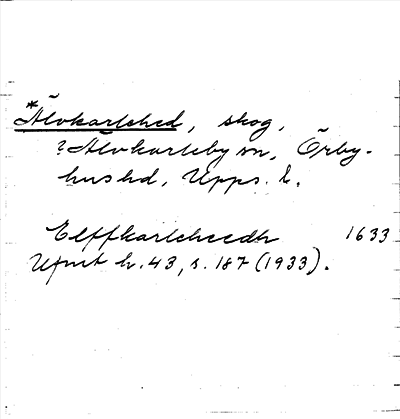 *Älvkarlehed, skog,
? Älvkarleby sn, Örby-
hushd, Upps. l.
Elffkarleheedh 1633
Ufmt h. 43, s. 187 (1933).